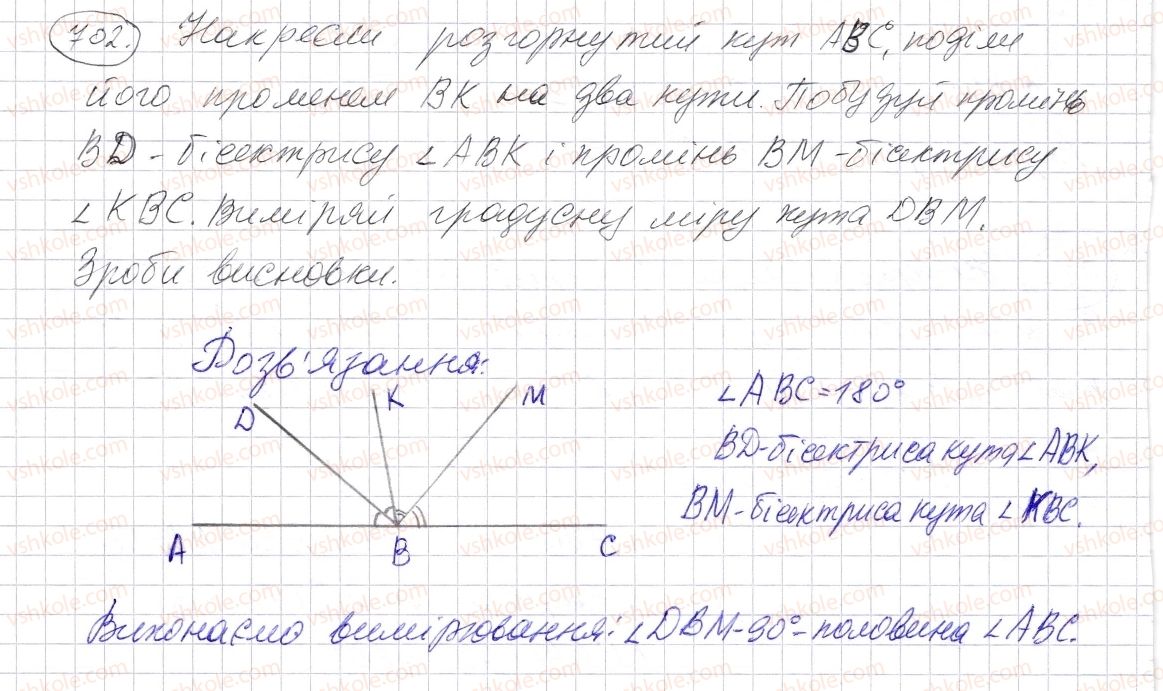 702. Накресли розгорнутий кут ABC, поділи
його променем BK на два кути. Побудуй промінь
BD - бісектрису ∠ABK і промінь BM - бісектрису
∠KBC. Виміряй градусну міру кута DBM.
Зроби висновки.
Розв'язання:
D K M
A B C
∠ABC=180°
BD-бісектриса кута ∠ABK,
BM-бісектриса кута ∠KBC.
Виконаємо вимірювання: ∠DBM-90°-половина ∠ABC.
vshkole.com